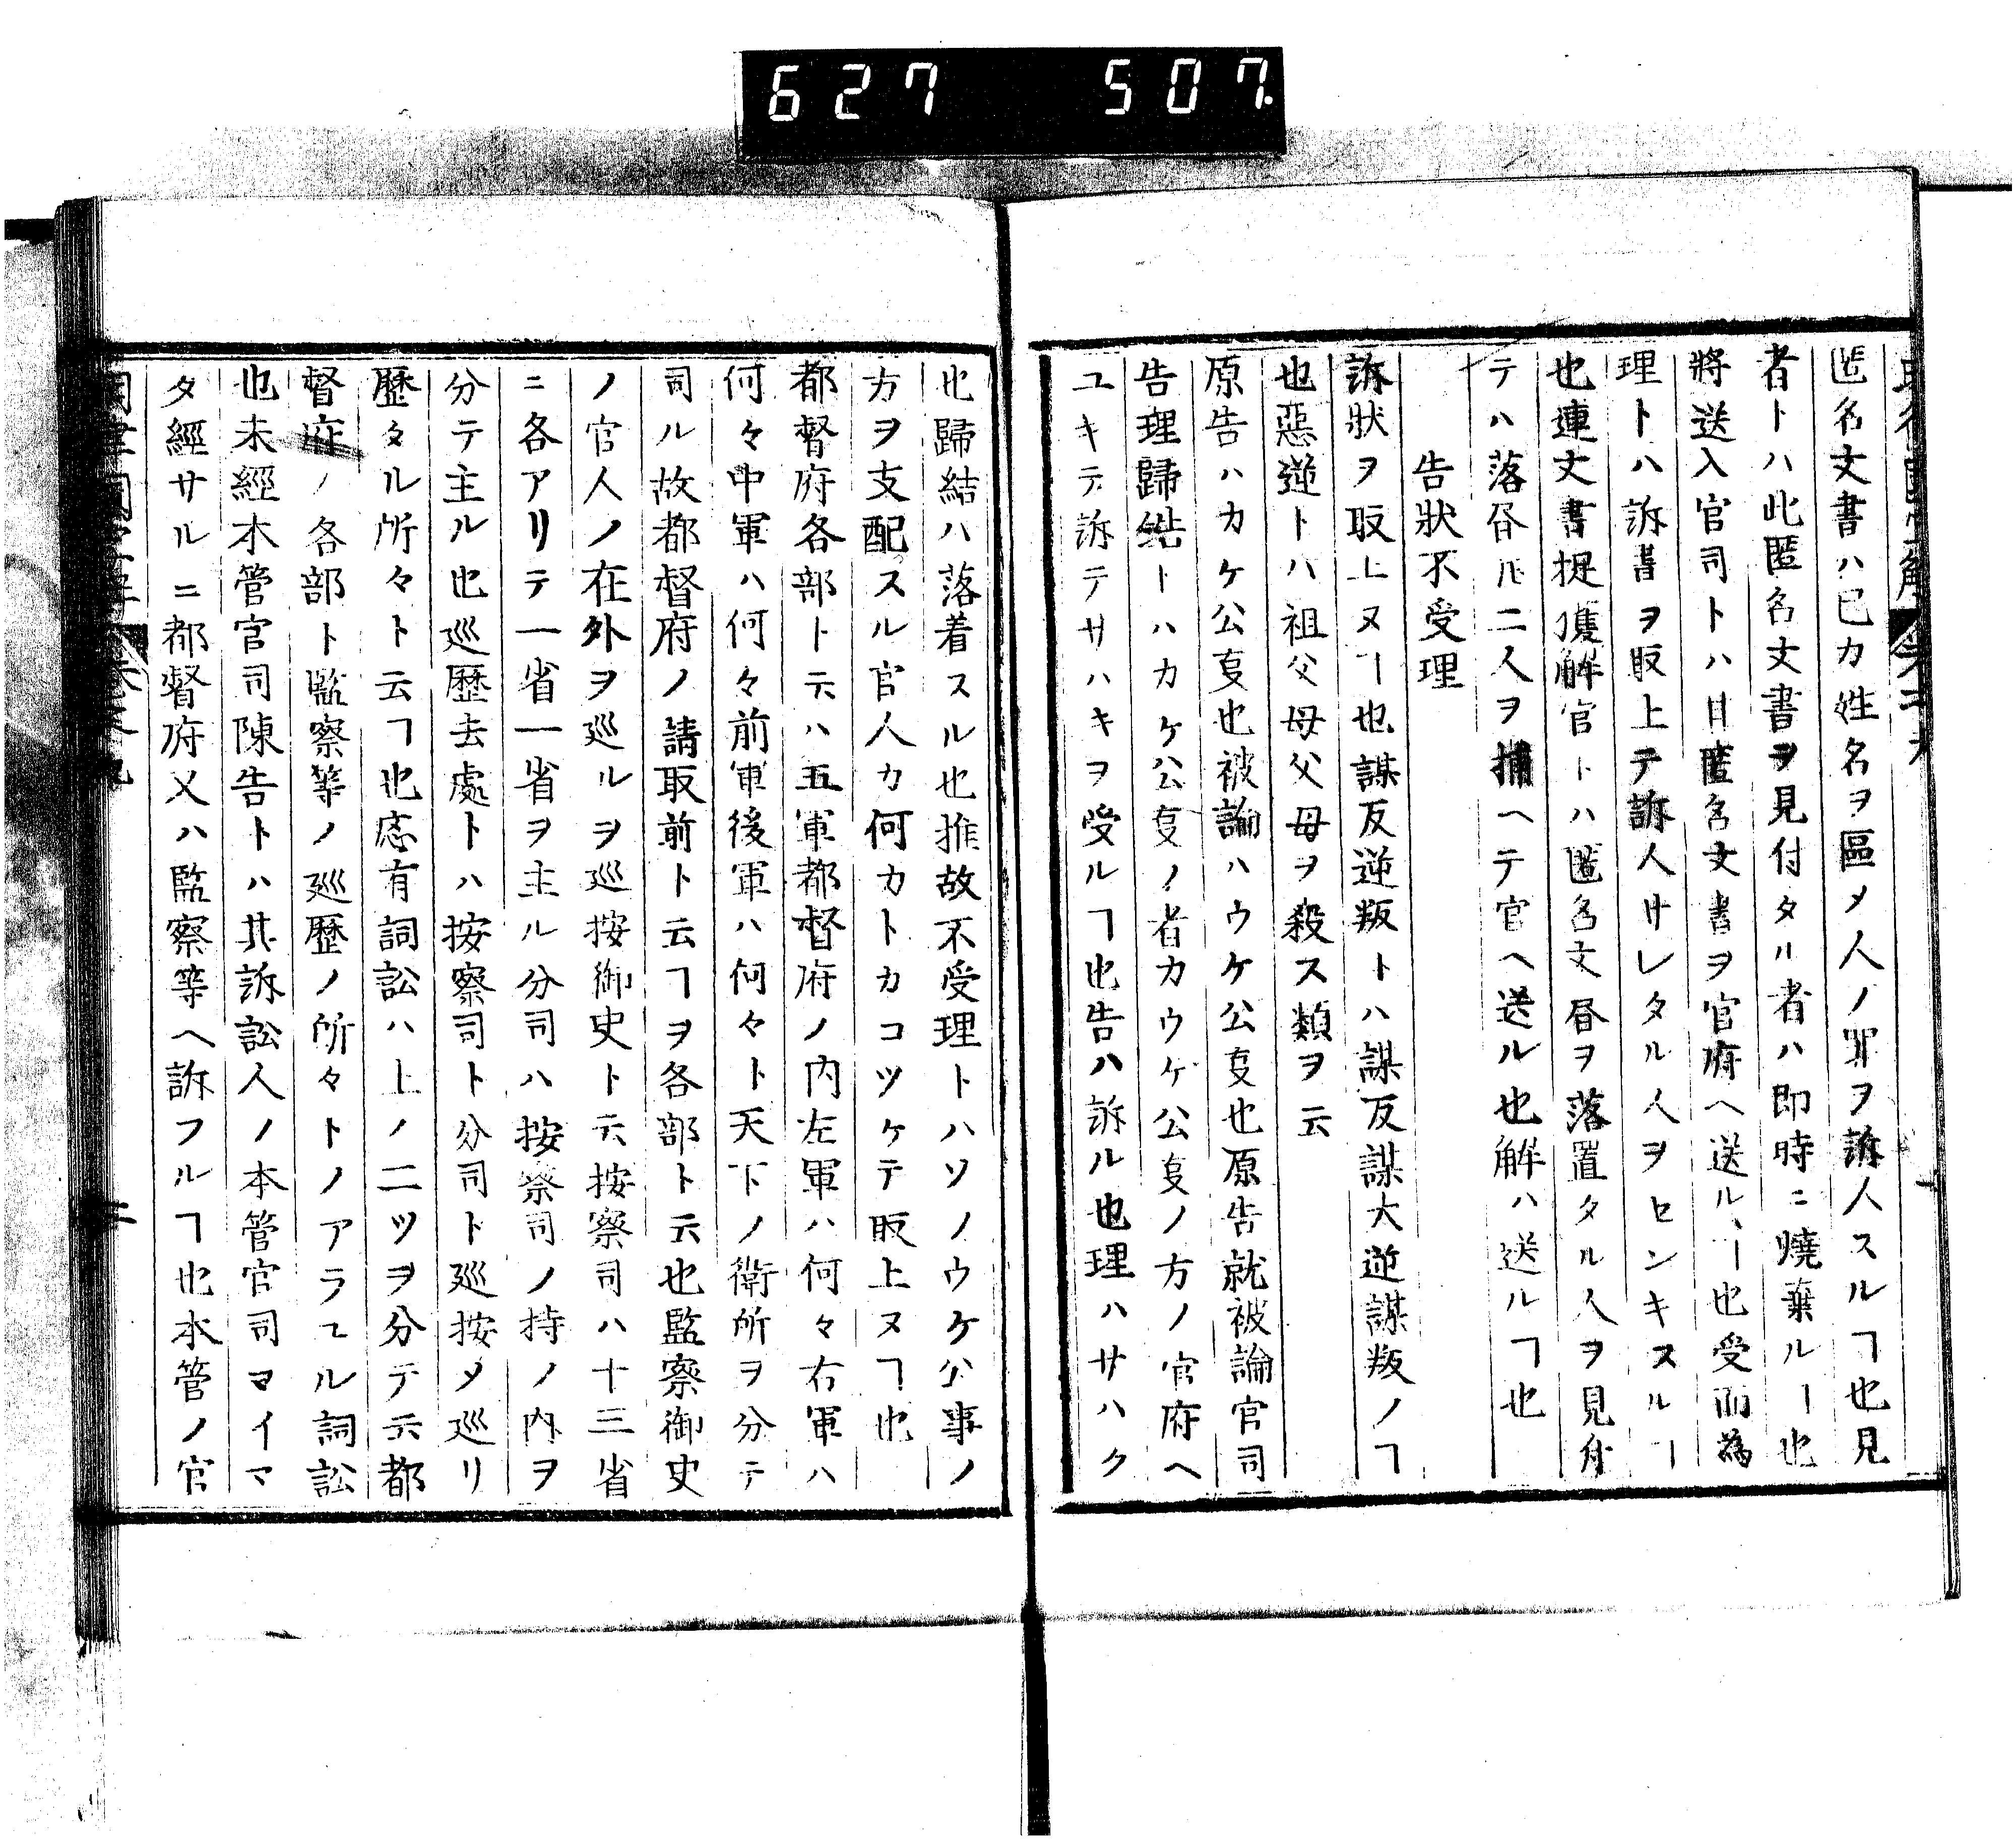 627 507
匿名文書ハ已カ姓名ヲ匿メ人ノ罪ヲ訴人スルヿ也見
者トハ此匿名文書ヲ見付タル者ハ即時ニ燒棄ルヿ也
將送入官司トハ其匿名文書ヲ官府ヘ送ルヿ也受而為
理トハ訴書ヲ取上テ訴人サレタル人ヲセンキスルヿ
也連文書捉獲解官トハ匿名文書ヲ落置タル人ヲ見付
テハ落書ト二人ヲ捕ヘテ官ヘ送ル也解ハ送ルヿ也
告狀不受理
訴狀ヲ取上ヌヿ也謀反逆叛トハ謀反謀大逆謀叛ノヿ
也惡逆トハ祖父母父母ヲ殺ス類ヲ云
原告ハカケ公事也被論ハウケ公事也原告就被論官司
告理歸結トハカケ公事ノ者カウケ公事ノ方ノ官府ヘ
ユキテ訴テサハキヲ受ルヿ也告ハ訴ル也理ハサハク
也歸結ハ落着スル也推故不受理トハソノウケ公事ノ
方ヲ支配スル官人カ何カトカコツケテ取上ヌヿ也
都督府各部ト云ハ五軍都督府ノ内左軍ハ何々右軍ハ
何々中軍ハ何々前軍後軍ハ何々ト天下ノ衛所ヲ分テ
司ル故都督府ノ請取前ト云ヿヲ各部ト云也監察御史
ノ官人ノ在外ヲ巡ルヲ巡按御史ト云按察司ハ十三省
ニ各アリテ一省一省ヲ主ル分司ハ按察司ノ持ノ内ヲ
分テ主ル也巡歷去處トハ按察司ト分司ト巡按メ巡リ
歷タル所々ト云ヿ也應有詞訟ハ上ノ二ツヲ分テ云都
督府ノ各部ト監察等ノ巡歷ノ所々トノアラユル詞訟
也未經本管官司陳告トハ其訴訟人ノ本管官司マイマ
タ經サルニ都督府又ハ監察等ヘ訴フルヿ也本管ノ官